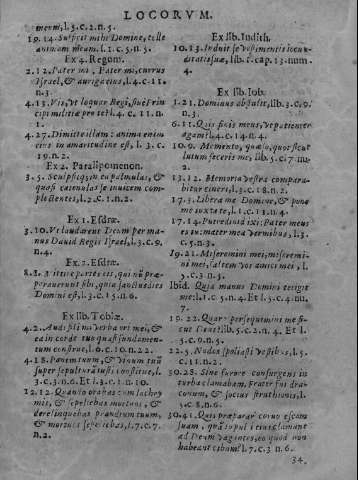 LOCORVM.
meum, l.3.c.2.n.5.
19.14. Suscipe mihi Domine, tolle
animam meam. l.1.c.5.n.3.
Ex 4. Regum.
2.12. Pater mi, Pater mi, currus
Israel, & auriga eius, l.4.c.11.
n.3.
4.13. Vis, vt loquar Regi, siue Prin
cipi militiæ pro te? l.4.c. 11. n.
1.
4.27. Dimitte illam: anima enim
eius in amaritudine est, l. 3. c.
19. n.2.
Ex 2. Paralipomenon.
3. 5. Sculpsitq; in ea palmulas, &
quasi catenulas se inuicem com-
plectentes, l.2.c.1.n.2.
Ex 1. Esdræ.
3. 10. Vt laudarent Deum per ma-
nus Dauid Regis Israel, l.3.c.9.
n.4.
Ex 2. Esdræ.
8. tristi
parauerunt sibi, quia sanctus dies
Domini est, l.3.c.15.n.6.
Ex lib. Tobiæ.
4.2. Audi fili mi verba oris mei, &
ea in corde tuo quasi fundamen-
tum construe, l.6.c.10.n.22.
4.18. Panem tuum, & vinum tuū
super sepulturā iusti constitue, l.
3.c.3.n.6. Et l.3.c.1.n.10.
12.12. Quando orabas cum lachry
mis, & sepeliebas mortuos, &
derelinquebas prandium tuum,
& mortuos sepeliebas, l.7.c.7.
n.2.
Ex lib. Iudith.
10. 13. Induit se vestimentis iocun
ditatis suæ, lib. cap. 13. num.
4.
Ex lib. Iob.
1.21. Dominus abstulit, lib.3.c.9.
n.3.
6.11. Quis finis meus, vt patienter
agam? l.4.c.14.n.4.
10.9. Memento, quæso, quod sicut
lutum feceris me, lib.5.c.7.nu.
2.
13.12. Memoria vestra compara-
bitur cineri, l.3.c.18.n.2.
17.3. Libera me Domine, & pone
me iuxta te, l.1.c.11.n.4.
17.14. Putredini dixi: Pater meus
es: mater mea vermibus, l.3.
c.5.n.3.
19.21. Miseremini mei, misere-
mini mei, saltem vos amici mei, l.
5.c.3.n.3.
Ibid. Quia manus Domini tetigit
me: l.1.c.5.n.4. Et l.3.c.4.nu.
7.
19. 22. Quare persequimini me si-
cut Deus? lib.5.c.2.n.4. Et l.
5.c.9.n.5.
22.6. Nudos spoliasti vestibus, l.5.
c.11.n.2.
30.28. Sine furore consurgens in
turba clamabam. Frater fui dra-
conum, & socius struthionis, l.
5.c.8.n.6.
30.41. Quis præparat coruo escam
suam, quādo pulli eius clamant
ad Deum vagantes, eo quod non
habeant cibum? l.7.c.3 n.6.
34.